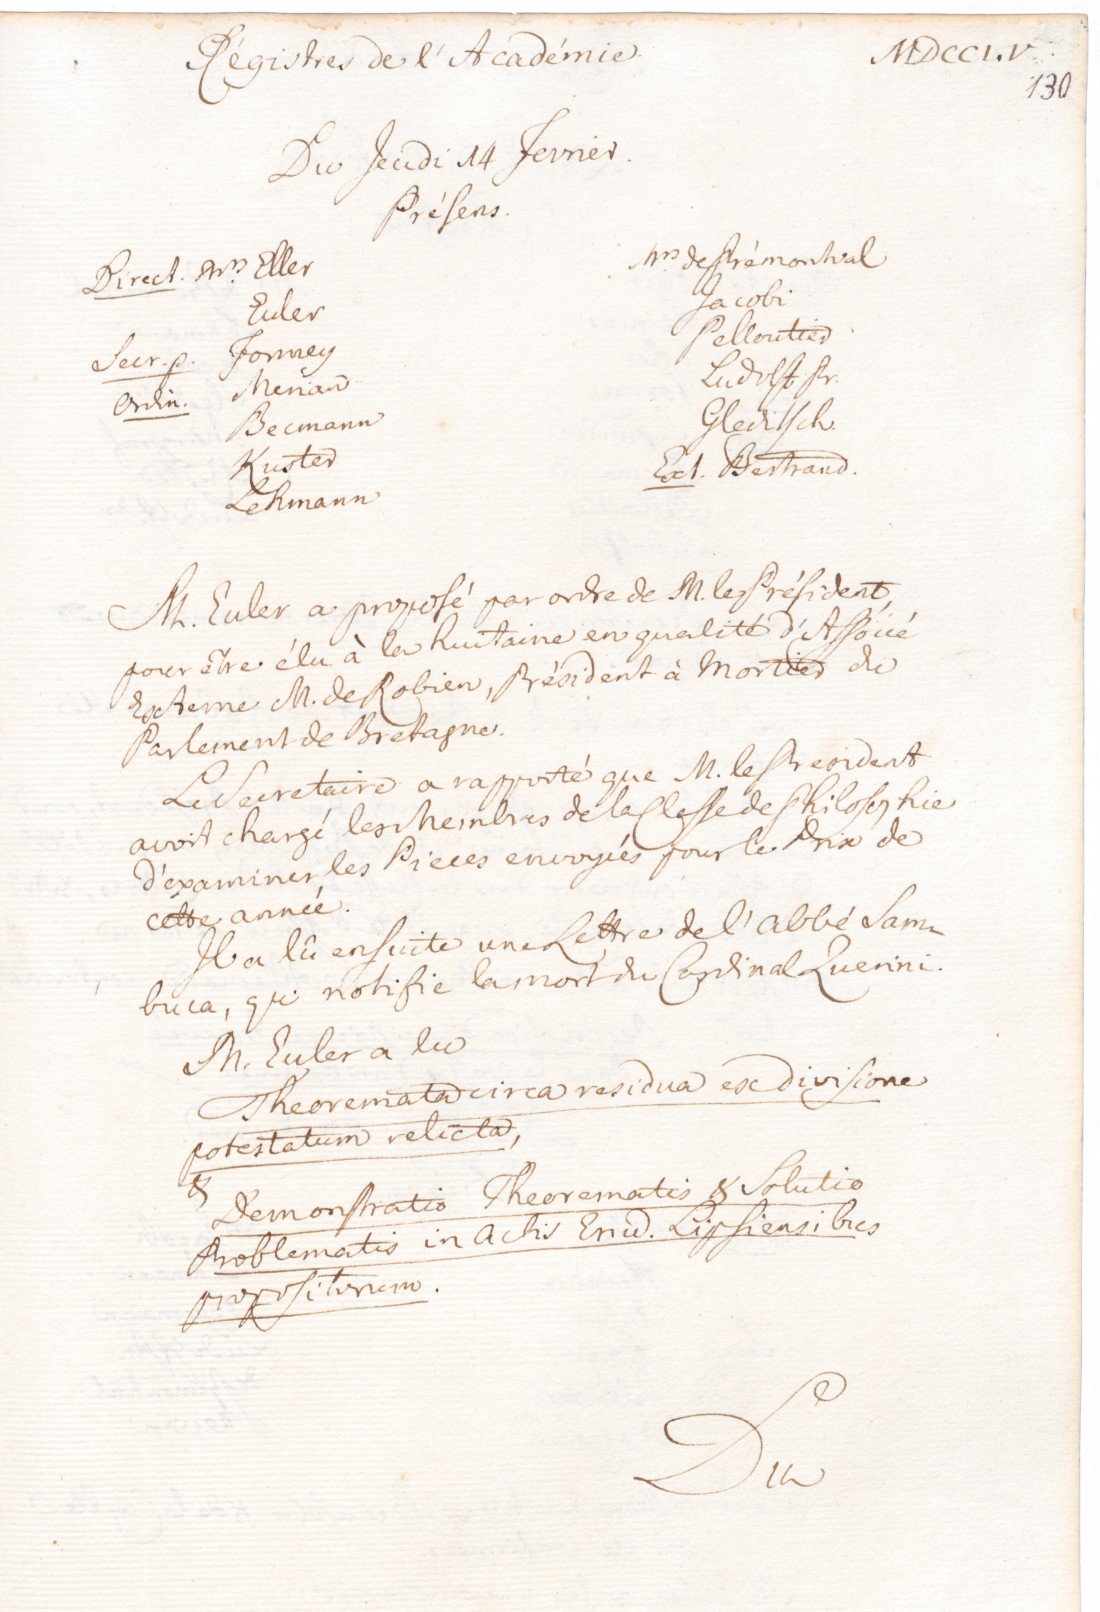 Régistres de l'Académie MDCCLV
130
Du Jeudi 14 Fevrier.
Présens.
Direct. Mrs Eller
Euler
Secr. p. Formey
Ordin. Merian
Becmann
Kuster
Lehmann
Mrs de Prémontval
Jacobi
Pelloutier
Ludolff Pr.
Gleditsch.
Ext. Bertrand.
M. Euler a proposé par ordre de M. le Président,
pour être élu à la huitaine en qualité d'Associé
Externe M. de Robien, Président à Mortier du
Parlement de Bretagne.
Le Secretaire a rapporté que M. le President
avoit chargé les Membres de la Classe de Philosophie
d'examiner les Pieces envoyées pour le Prix de
cette année.
Il a lû ensuite une Lettre de l'abbé Sam-
buca, qui notifie la mort du Cardinal Querini.
M. Euler a lu
Theoremata circa residua ex divisione
potestatum relicta,
&
Demonstratio Theorematis & Solutio
Problematis in Actis Erud. Lipsiensibus
propositorum.
Du